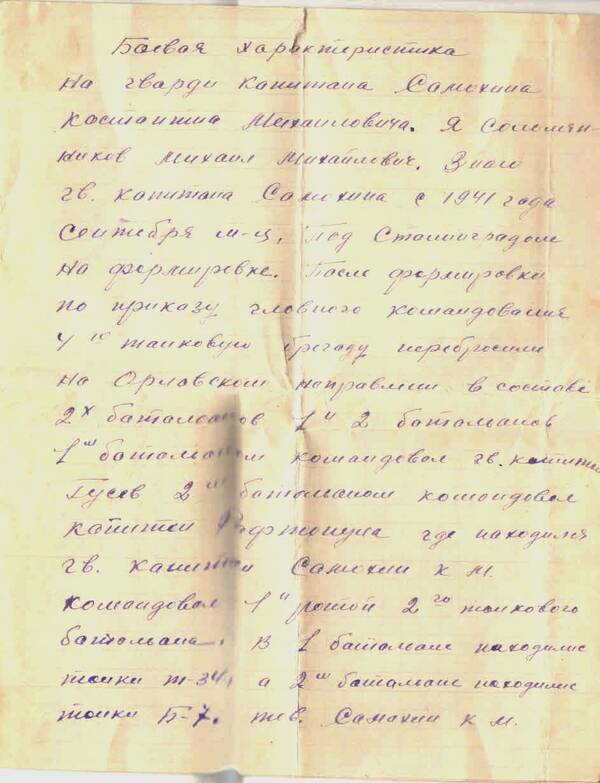 Боевая характеристика
на гварди капитана Самохина
Костантина Михаиловича. Я Соломян-
ников Михаил Михайлович. Знаю
гв. капитана Самохина с 1941 года
Сентября м-ц. Под Сталинградом
на формировке. После формировки
по приказу главного командования
4ю танковую бригаду перебросили
на Орловском направлении в составе
2х баталионов 1й 2 баталионов
1м баталионом командовал гв. капитан
Гусев 2м баталионом командовал
капитан где находился
гв. капитан Самохин К М.
командовал 1й ротой 2го танкового
баталиона. В 1 баталионе находились
танки т-34, а 2м баталионе находились
танки Б-7. Самохин К М.